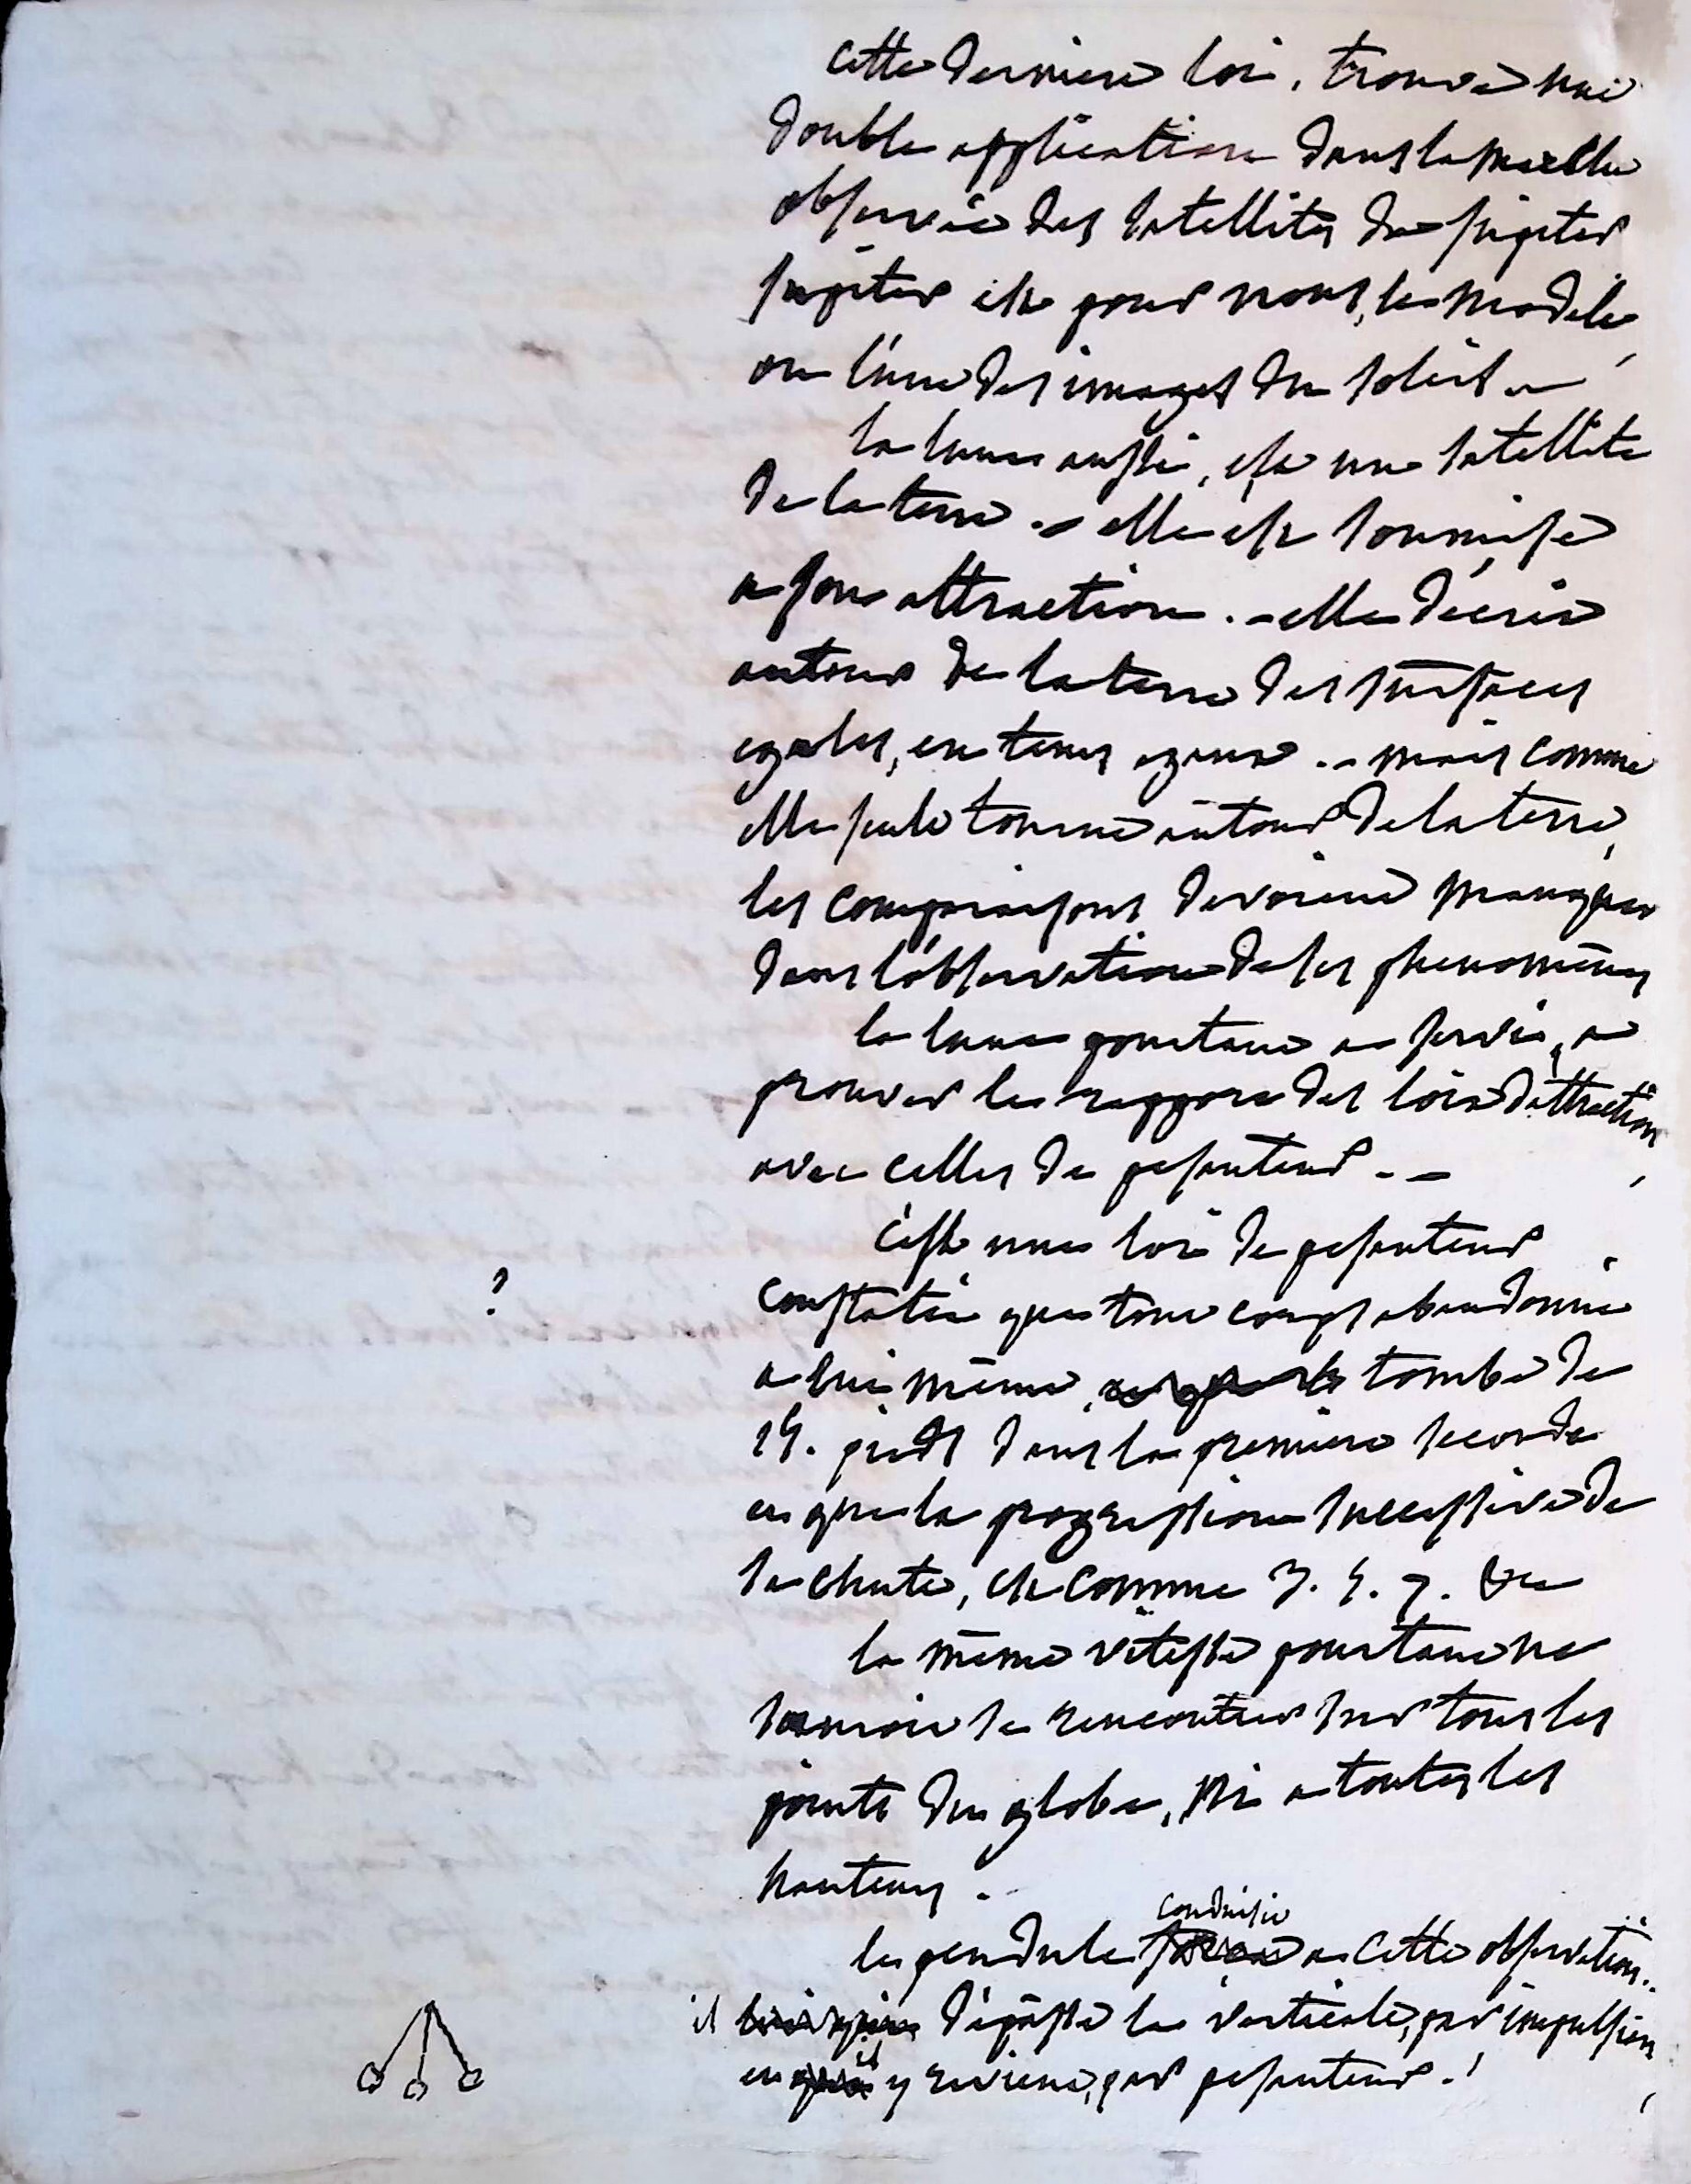 cette derniere loi, trouve une
double application dans la marche
observée des satellites de jupiter
jupiter est pour nous, le modèle,
ou l'une des images du soleil -
la lune aussi, est un satellite
de la terre. - elle est soumise
a son attraction. - elle décrit
autour de la terre des surfaces
egales, en tems egaux. - mais comme
elle seule tourne autour de la terre,
les comparaisons devoient manquer
dans l'observation de ses phenomènes
la lune pourtant a servi, a
prouver le rapport des loix d'attraction
avec celles de pesanteur. -
c'est une loi de pesanteur
?
constatée que tout corps abandonné
a lui même, tombe de
15. pieds dans la premiere seconde
et que la progression successive de
sa chute, est comme 3. 5. 7. &c
la même vitesse pourtant ne
sauroit se rencontrer sur tous les
points du globe, ni a toutes les
hauteurs.
conduisit
le pendule a cette observation..
il dépasse la verticale, par impulsion
et il y revient, par pesanteur. !